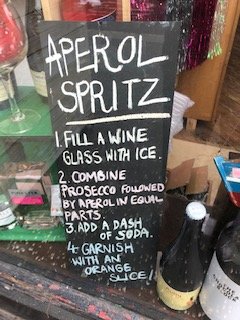 APEROL
SPRITZ
1. FILL A WINE
GLASS WITH ICE.
2. COMBINE
PROSECCO FOLLOWED
BY APEROL IN EQUAL
PARTS.
3. ADD A DASH
OF SODA.
4. GARNISH
WITH AN
ORANGE
SLICE!